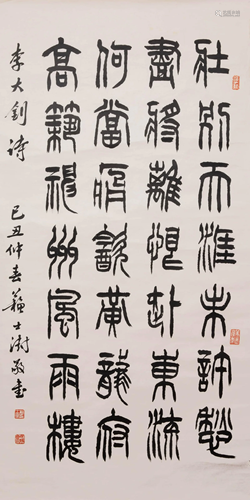 壯別天涯未許愁
盡將離恨赴東流
何當痛飲黃龍府
高築神州風雨樓
李大釗詩 己丑仲春 蘇士澍敬書